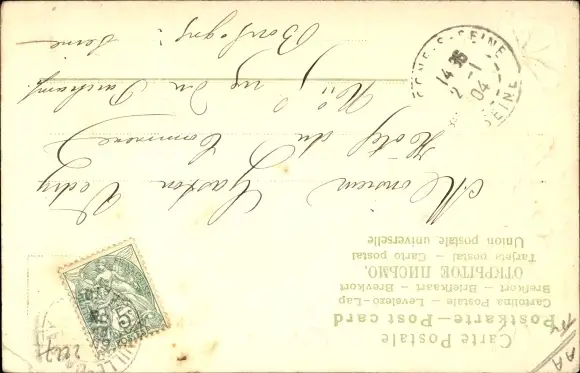 Carte Postale
Postkarte – Post card
Cartolina Postale – Levelezo-Lap
Brefkort – Briefkaart – Brevkort
ОТКРЫТОЕ ПИСЬМО.
Tarjeta postal – Carto postal
Union postale universelle
Monsieur Gaston Vedry
Hôtel du Commerce
rue du
Seine
SEINE
14 35
2 - 1
04
SEINE
5